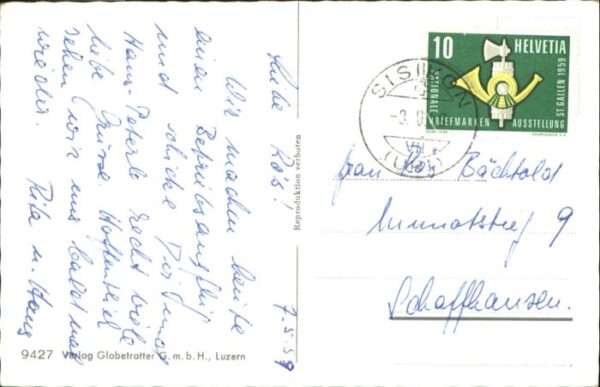 Liebe Rös!
Wir machen heute
einen Betriebsausflug
und schicke Dir und
Hans-Peterli recht viele
liebe Grüsse. Hoffentlich
sehen wir uns bald mal
wieder. Rita u. Hans
7.5.59
9427 Verlag Globetrotter G. m. b. H., Luzern
Reproduktion verboten
10 HELVETIA
NATIONALE
BRIEFMARKEN AUSSTELLUNG
ST. GALLEN 1959
SISIKON
(URI)
Frau Rös Bächtold
9
Schaffhausen.